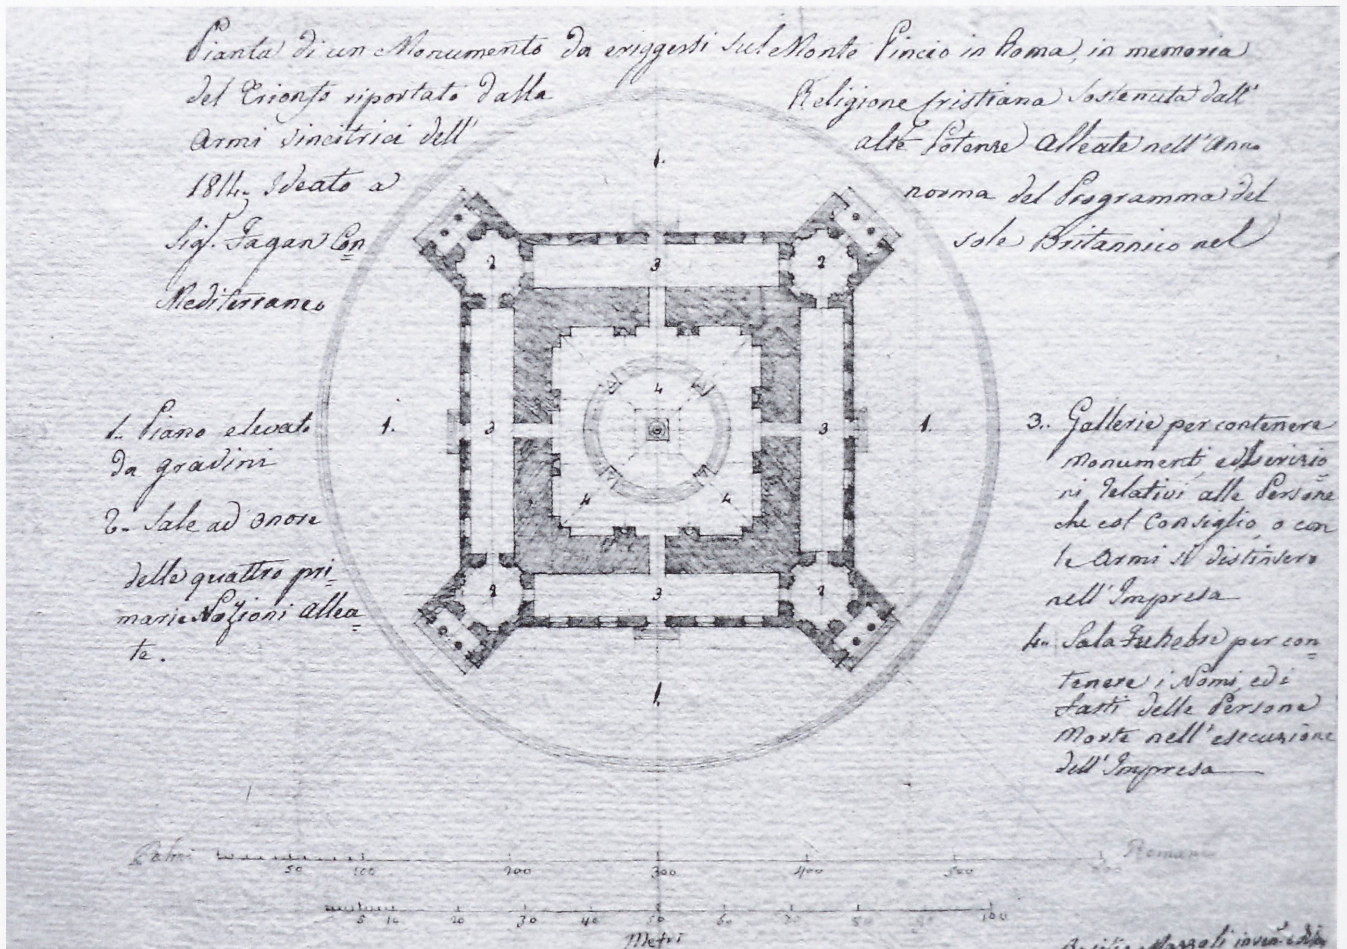 Pianta di un Monumento da eriggersi sul Monte Pincio in Roma, in memoria
del Trionfo riportato dalla Religione Cristiana sostenuta dall'
Armi vincitrici dell' alte Potenze Alleate nell'Anno
1814. Ideato a norma del Programma del
Sig.r Fagan Con
sole Britannico nel
Mediterraneo
1.. Piano elevato
da gradini
2.. Sale ad onore
delle quattro pri-
marie Nazioni allea-
te.
3.. Gallerie per contenere
monumenti ed Iscrizio
ni relativi alle Persone
che col Consiglio o con
le Armi si distinsero
nell'Impresa
4.. Sala Funebre per con=
tenere i Nomi ed i
fasti delle Persone
Morte nell'esecuzione
dell'Impresa
1.
2 3 2
1. 3 4 3 1.
4 4
2 3 2
1.
Palmi 50 100 200 300 400 500 600 Romani
5 10 20 30 40 50 60 70 80 90 100
Metri